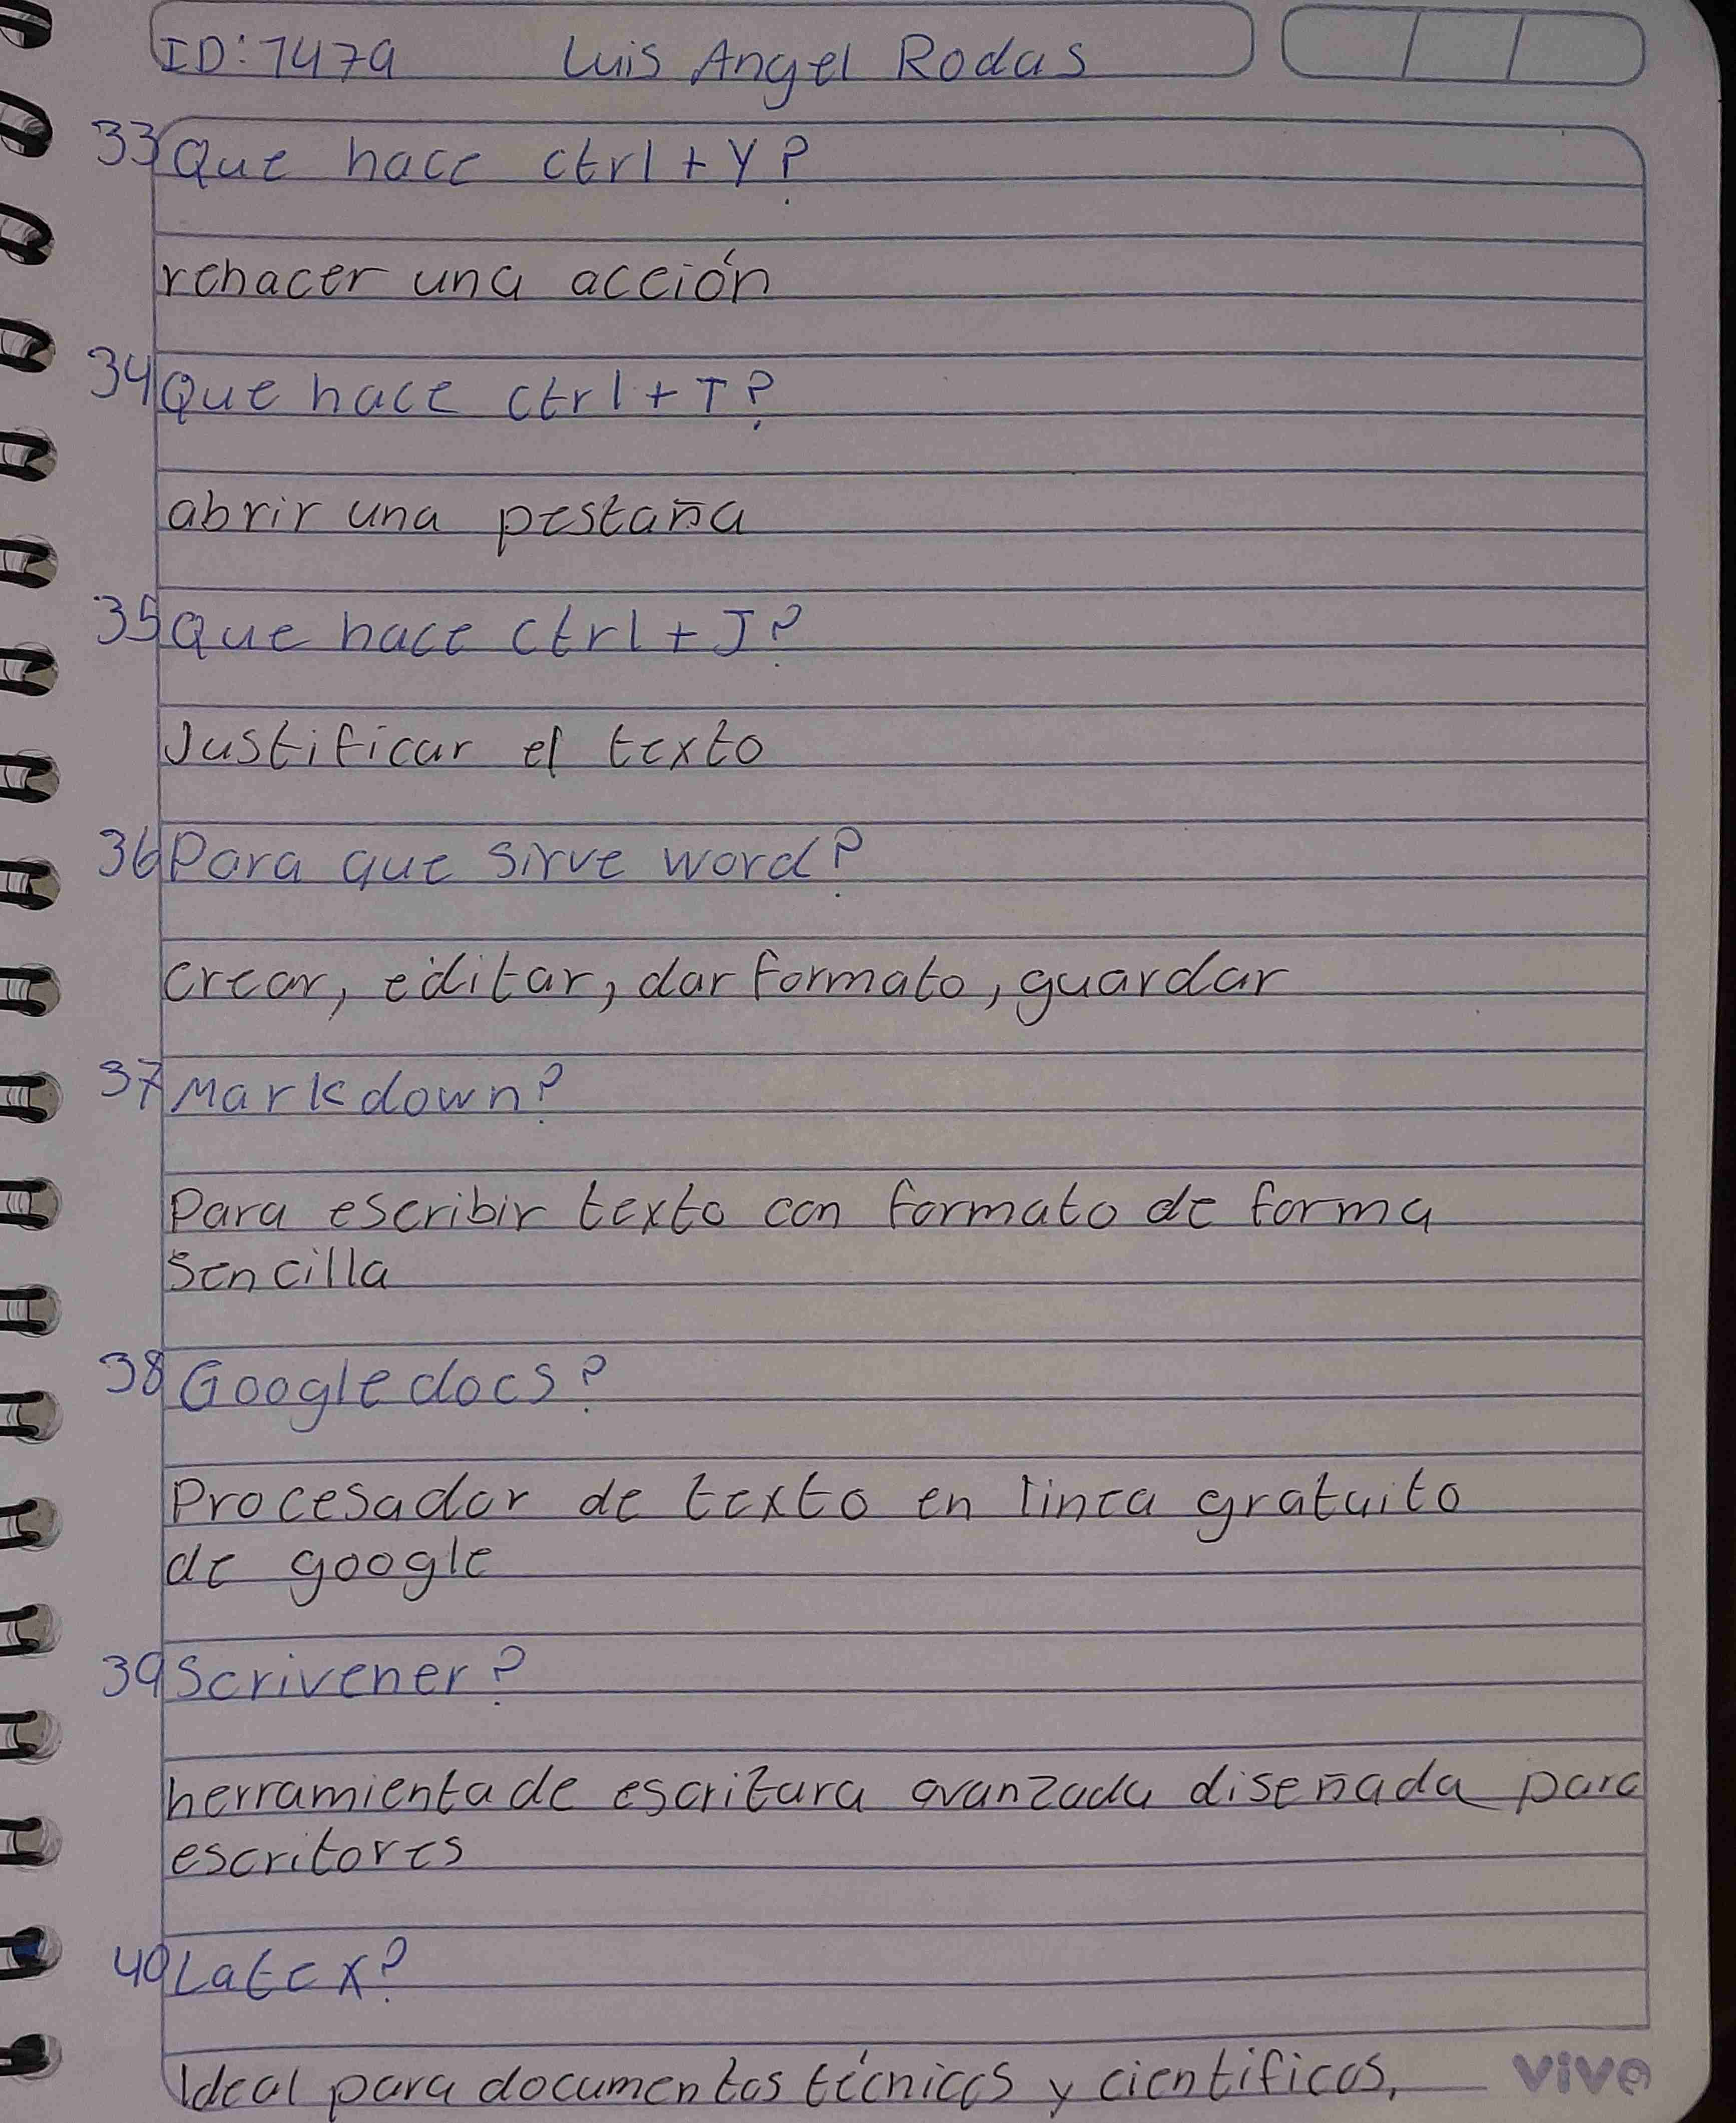 ID: 7479 Luis Angel Rodas
33 Que hace ctrl + Y?
rehacer una acción
34 Que hace ctrl + T?
abrir una pestaña
35 Que hace ctrl + J?
Justificar el texto
36 Para que sirve word?
crear, editar, dar formato, guardar
37 Markdown?
Para escribir texto con formato de forma
sencilla
38 Google docs?
Procesador de texto en linea gratuito
de google
39 Scrivener?
herramienta de escritura avanzada diseñada para
escritores
40 Latex?
Ideal para documentos técnicos y cientificos,
vive